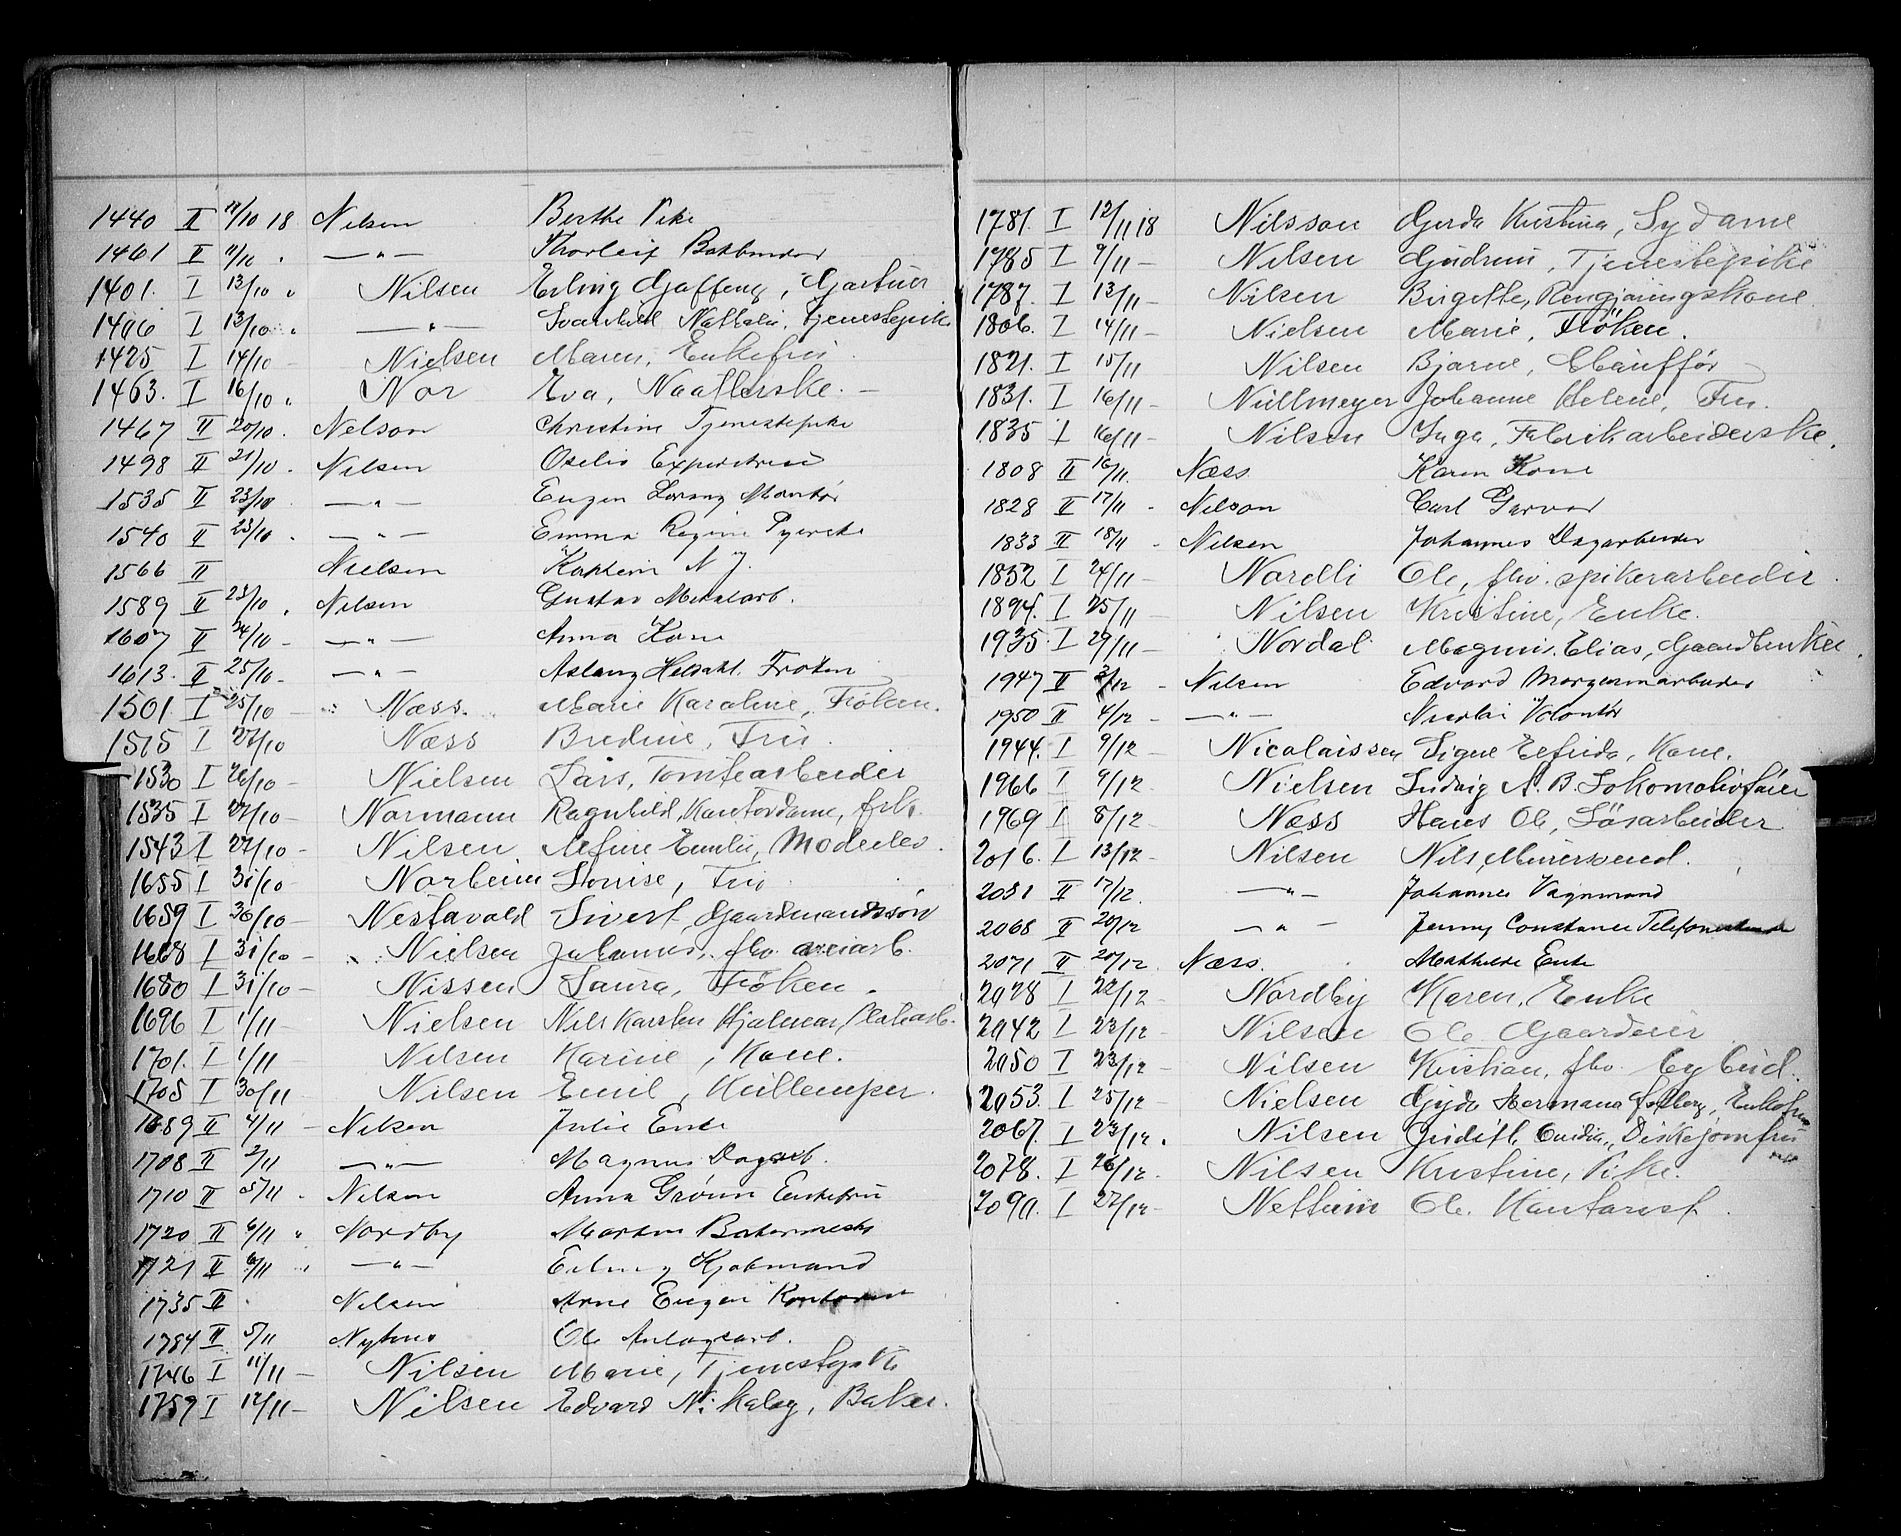 1440 II 11/10 18 Nilsen Berthe Pike
1461 II 11/10 " —"— Thorleif Bokbinder
1401. I 13/10 " Nilsen Erling Gjaffeng, Gartner
1406 I 13/10 " —"— Svanhild Nathalie, Tjenestepike
1425 I 14/10 – Nielsen Maren, Enkefru
1463. I 16/10 " Nor Eva, Naatlerske. –
1467 II 20/10 . Nelson Christine Tjenestepike
1498 II 21/10 . Nilsen Oselie Expeditrice
1535 II 23/10 —"— Eugen Lorang Montør
1540 II 23/10 . —"— Emma Regine
1566 II Nielsen Kaptein N J.
1589 II 23/10 " Nilsen Gustav Metalarb.
1607 II 24/10 – —"— Anna Kone
1613. II 25/10 – —"— Aslaug Frøken
1501. I 25/10 – Næss. Marie Karoline, Frøken.
1515 I 27/10 Næss Bredine, Fru.
1530 I 26/10 – Nielsen Lars, Tomtearbeider
1535 I 27/10 – Normann Ragnhild, Kontordame, frk.
1543 I 27/10 – Nilsen Emilie, Modelev.
1655 I 31/10 – Norheim Louise, Fru
1659 I 30/10 – Nestavold Sivert, Gaardmandssøn
1668 I 31/10 – Nielsen Johannes, fhv.
1680 I 31/10 – Nissen Laura, Frøken.
1696 I 1/11 – Nielsen Nils Karsten Hjalmar,
1701. I 1/11 – Nilsen Karine, Kone.
1705 I 30/11 Nilsen Emil,
1689 II 4/11 – Nilsen Julie Enke
1708 II 2/11 —"— Magnus Dagarb.
1710 II 5/11 " Nilsen Anna Grønn Enkefru
1720 II 6/11 " Nordby Martin
1721 II 6/11 " —"— Kjøbmand
1735 II . Nilsen Arne Eugen Kontorist
1784 II 5/11 Nyhus Ole Anlægsarb.
1746 I 11/11 – Nilsen Marie, Tjenestepike
1759 I 12/11 – Nilsen Edvard Nikolay, Baker.
1781. I 12/11 18 Nilsson Gerda Kristina, Sydame
1785 I 9/11 – Nilsen Gudrun, Tjenestepike
1787. I 13/11 – Nilsen Birgitte, Rengjøringskone
1806. I 14/11 – Nielsen Marie, Frøken.
1821. I 15/11 Nilsen Bjarne, Chauffør
1831. I 16/11 – Nüllmeyer Johanne Helene, Fru.
1835 I 16/11 – Nilsen Inga, Fabrikarbeiderske.
1808 II 16/11. Næss Karen Kone
1828 II 17/11 – Nilson Carl Garver
1833 II 18/11 – Nilsen Johannes Dagarbeider
1832 I 24/11 – Nordli Ole, fhv. spikerarbeider.
1894. I 25/11 Nilsen Kristine, Enke.
1935. I 29/11 – Nordal Magnus Elias, Gaardbruker.
1947 II 3/12 – Nilsen Edvard
1950 II 4/12 – —"— Nicolai Volontør
1944. I 9/12 – Nicolaissen Signe Elfrida, Kone.
1966 I 9/12 Nielsen Ludvig A. B. Lokomotivfører
1969 I 8/12 – Næss Hans Ole, Løsarbeider
2016. I 13/12 – Nilsen Nils, Murersvend.
2031 II 17/12. —"— Johannes Vognmand
2068 II 20/12 —"— Jenny Constance
2071 II 20/12. Næss. Mathilde Enke
2028 I 22/12 – Nordby Karen, Enke
2042 I 23/12 – Nilsen Ole Gaardeier
2050 I 23/12 – Nilsen Kristian, fhv. bybud.
2053. I 25/12 – Nielsen Gyda Hermana Enkefru
2067. I 23/12. Nilsen Judith
2078. I 26/12. Nilsen Kristine, Pike.
2090. I 27/12 – Nettum Ole, Kontorist.